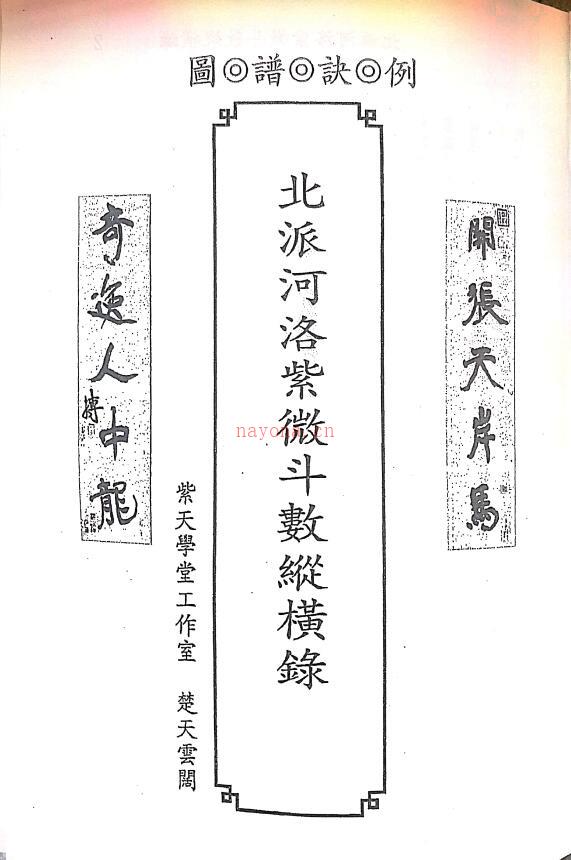 圖◎譜◎訣◎例
開張天岸馬
北派河洛紫微斗數縱橫錄
紫天學堂工作室 楚天雲闊
奇逸人中龍
摶
nayona.cn